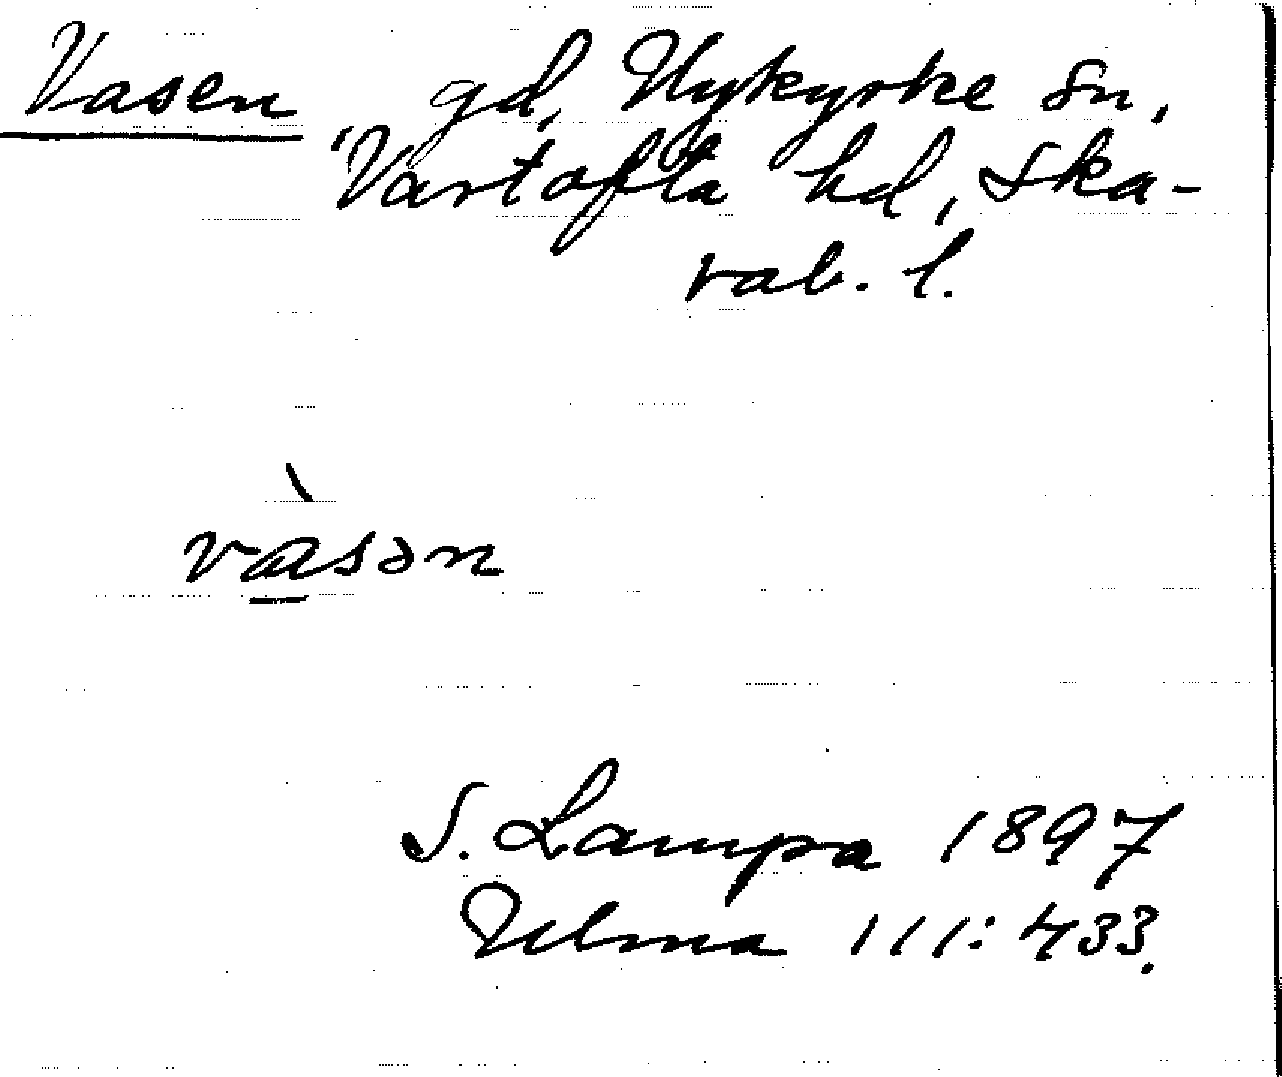 Vasen gd, Nykyrke sn,
Vartofta hd, Ska-
rab. l.
vàsən
S. Lampa 1897
Ulma 111:433.